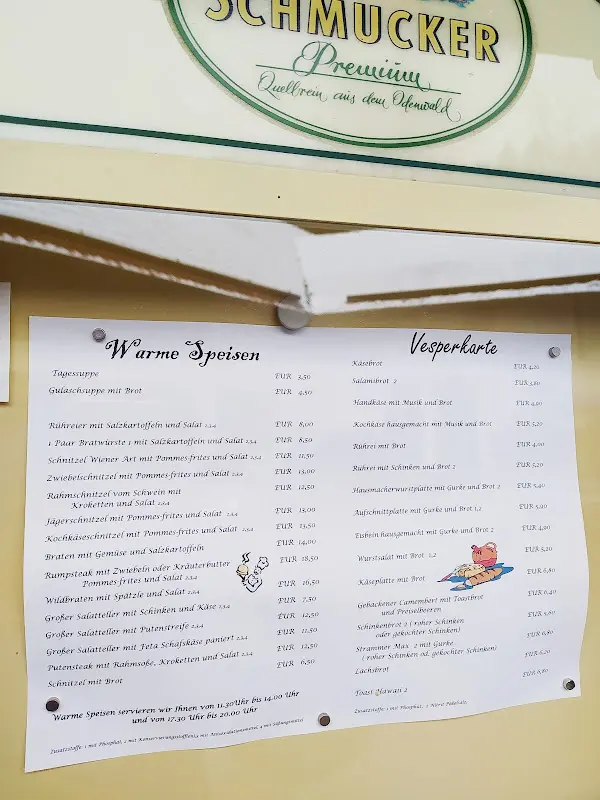 SCHMUCKER
Premium
Quellrein aus dem Odenwald
Warme Speisen
Tagessuppe EUR 3,50
Gulaschsuppe mit Brot EUR 4,80
Rühreier mit Salzkartoffeln und Salat 2,3,4 EUR 8,00
1 Paar Bratwürste 1 mit Salzkartoffeln und Salat 2,3,4 EUR 8,50
Schnitzel Wiener Art mit Pommes-frites und Salat 2,3,4 EUR 11,50
Zwiebelschnitzel mit Pommes-frites und Salat 2,3,4 EUR 13,00
Rahmschnitzel vom Schwein mit EUR 12,50
Kroketten und Salat 2,3,4
Jägerschnitzel mit Pommes-frites und Salat 2,3,4 EUR 13,00
Kochkäseschnitzel mit Pommes-frites und Salat 2,3,4 EUR 13,50
Braten mit Gemüse und Salzkartoffeln EUR 14,00
Rumpsteak mit Zwiebeln oder Kräuterbutter EUR 18,50
Pommes-frites und Salat 2,3,4
Wildbraten mit Spätzle und Salat 2,3,4 EUR 16,50
Großer Salatteller mit Schinken und Käse 2,3,4 EUR 7,50
Großer Salatteller mit Putenstreife 2,3,4 EUR 12,50
Großer Salatteller mit Feta Schafskäse paniert 2,3,4 EUR 11,50
Putensteak mit Rahmsoße, Kroketten und Salat 2,3,4 EUR 12,50
Schnitzel mit Brot EUR 6,50
Warme Speisen servieren wir Ihnen von 11.30Uhr bis 14.00 Uhr
und von 17.30 Uhr bis 20.00 Uhr
Zusatzstoffe: 1 mit Phosphat, 2 mit Konservierungsstoffen
Vesperkarte
Käsebrot EUR 4,20
Salamibrot 2 EUR 3,80
Handkäse mit Musik und Brot EUR 4,90
Kochkäse hausgemacht mit Musik und Brot EUR 5,20
Rührei mit Brot EUR 4,00
Rührei mit Schinken und Brot 2 EUR 5,20
Hausmacherwurstplatte mit Gurke und Brot 2 EUR 5,40
Aufschnittplatte mit Gurke und Brot 1,2 EUR 5,90
Eisbein hausgemacht mit Gurke und Brot 2 EUR 4,90
Wurstsalat mit Brot 1,2 EUR 5,20
Käseplatte mit Brot EUR 6,80
Gebackener Camembert mit Toastbrot EUR 6,40
und Preiselbeeren
Schinkenbrot 2 ( roher Schinken EUR 5,60
oder gekochter Schinken)
Strammer Max 2 mit Gurke EUR 6,80
( roher Schinken od. gekochter Schinken)
Lachsbrot EUR 6,20
Toast Hawaii 2 EUR 6,80
Zusatzstoffe: 1 mit Phosphat,